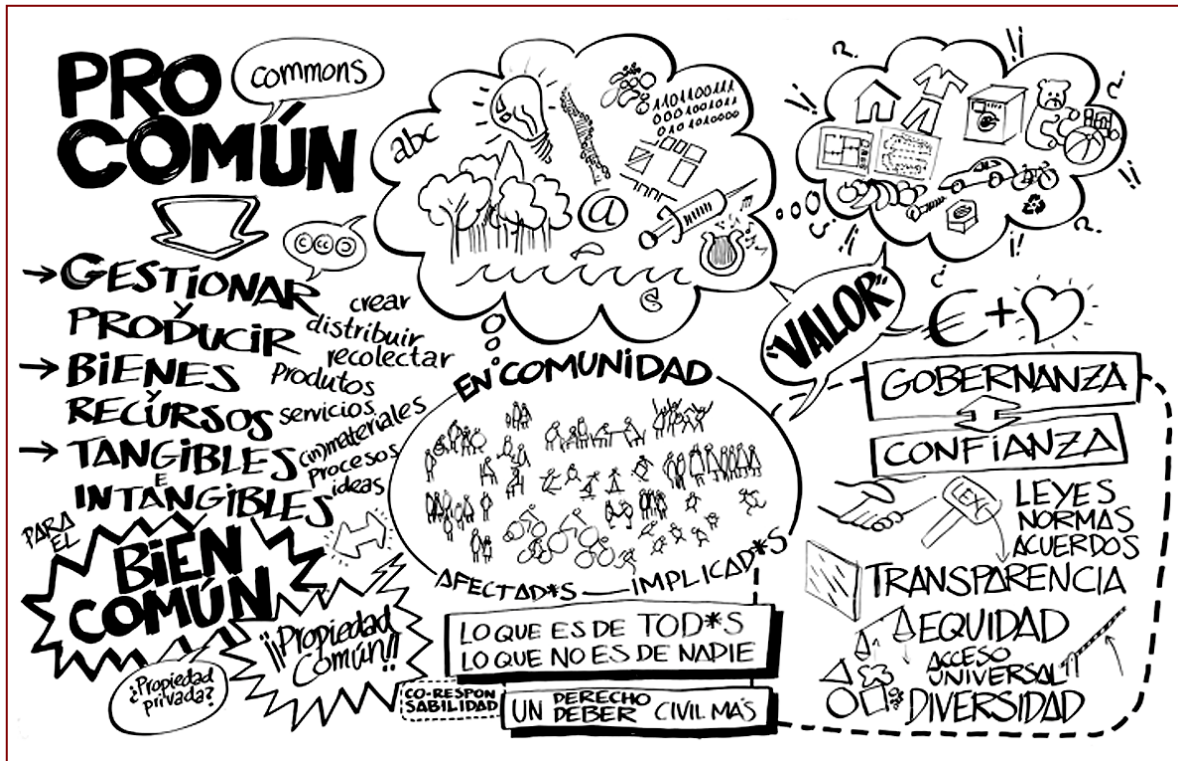 PRO
COMÚN
commons
→ GESTIONAR
Y
PRODUCIR
crear
distribuir
recolectar
→ BIENES
Y
RECURSOS
Produtos
servicios
→ TANGIBLES
E
INTANGIBLES
(in)materiales
procesos
ideas
PARA
EL
BIEN
COMÚN
¿Propiedad
privada?
¡¡Propiedad
Común!!
abc
@
EN COMUNIDAD
AFECTAD*S — IMPLICAD*S
LO QUE ES DE TOD*S
LO QUE NO ES DE NADIE
CO-RESPON
SABILIDAD
UN DERECHO
DEBER CIVIL MÁS
"VALOR"
€ +
GOBERNANZA
CONFIANZA
LEX
LEYES
NORMAS
ACUERDOS
TRANSPARENCIA
EQUIDAD
ACCESO
UNIVERSAL
DIVERSIDAD